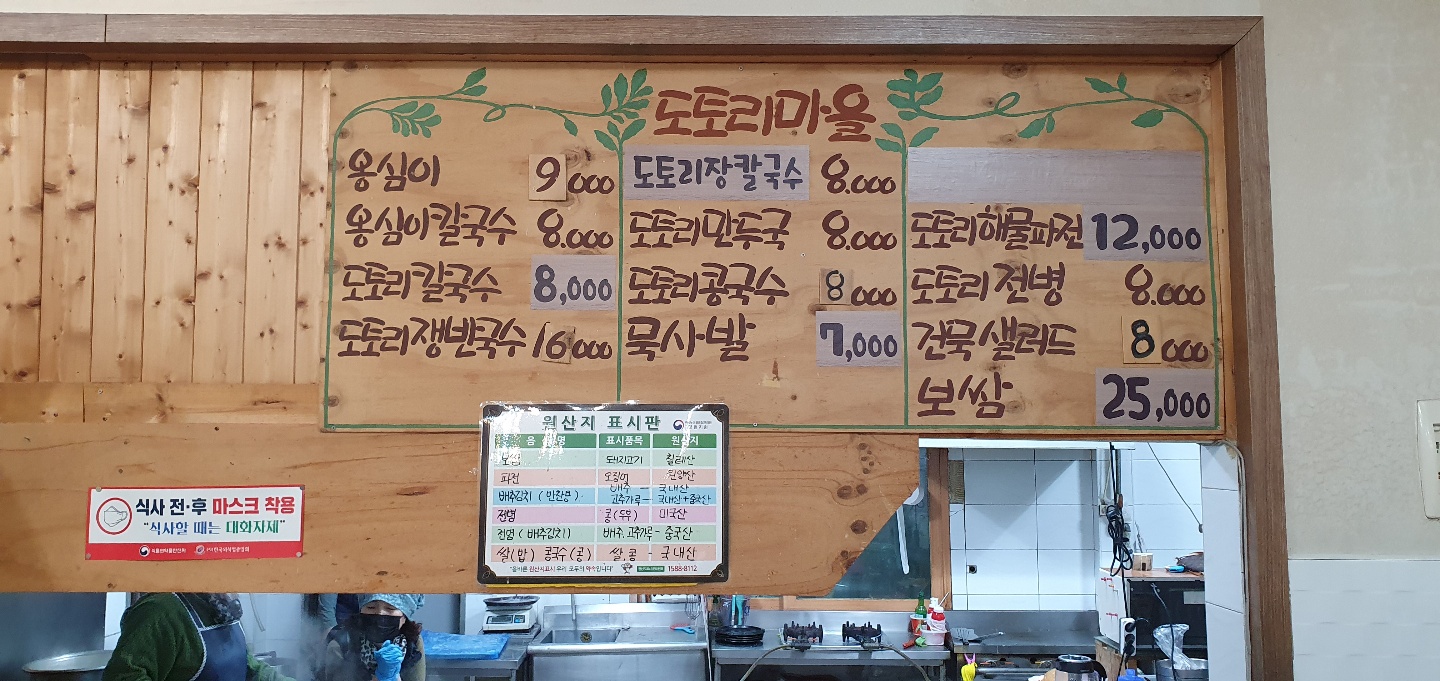 도토리마을
옹심이 9,000
옹심이칼국수 8.000
도토리칼국수 8,000
도토리쟁반국수 16,000
도토리장칼국수 8.000
도토리만두국 8.000
도토리콩국수 8,000
묵사발 7,000
도토리해물파전 12,000
도토리전병 8.000
건묵샐러드 8,000
보쌈 25,000
원산지 표시판
음 명 표시품목 원산지
보쌈 돼지고기 칠레산
파전 오징어 원양산
배추김치 (반찬용) 배추 - 국내산
고추가루 - 국내산+중국산
전병 콩(두부) 미국산
전병 (배추김치) 배추.고추가루 - 중국산
쌀(밥) 콩국수(콩) 쌀.콩 - 국내산
"올바른 원산지표시 우리 모두의 약속입니다" 1588-8112
식사 전·후 마스크 착용
"식사할 때는 대화자제"
식품의약품안전처 한국외식업중앙회